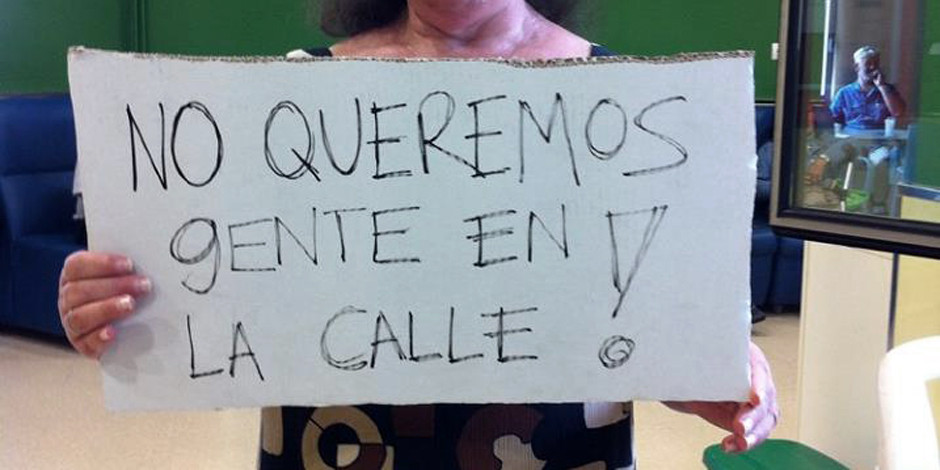 NO QUEREMOS
gENTE EN
LA CALLE !